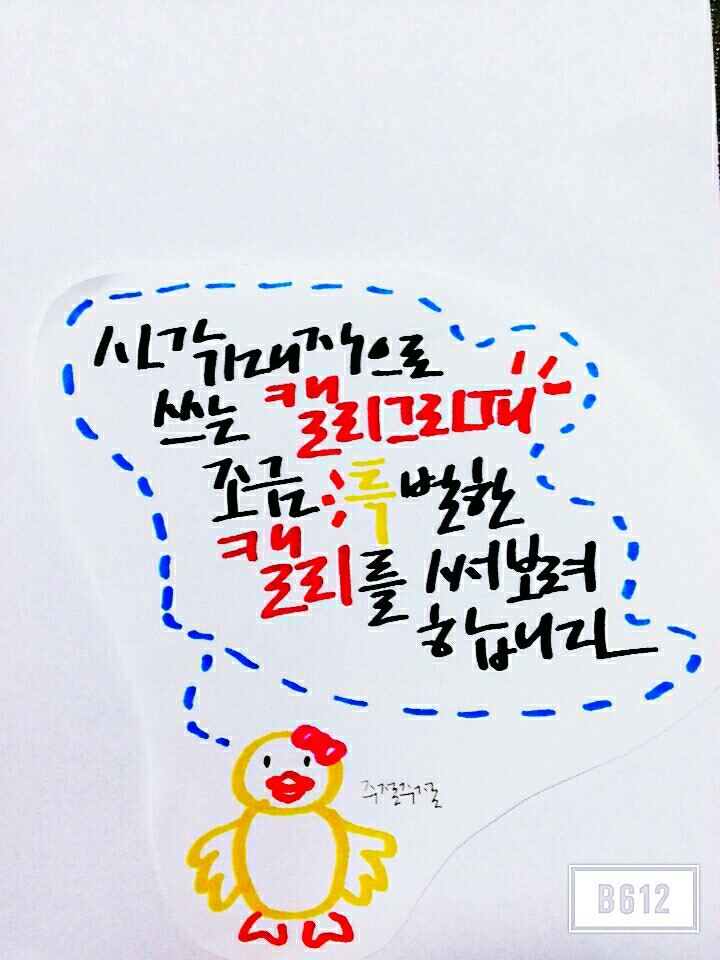 시각
쓰는 캘리그라피
조금 특별한
캘리를 써보려
합니다
주절주절
B612